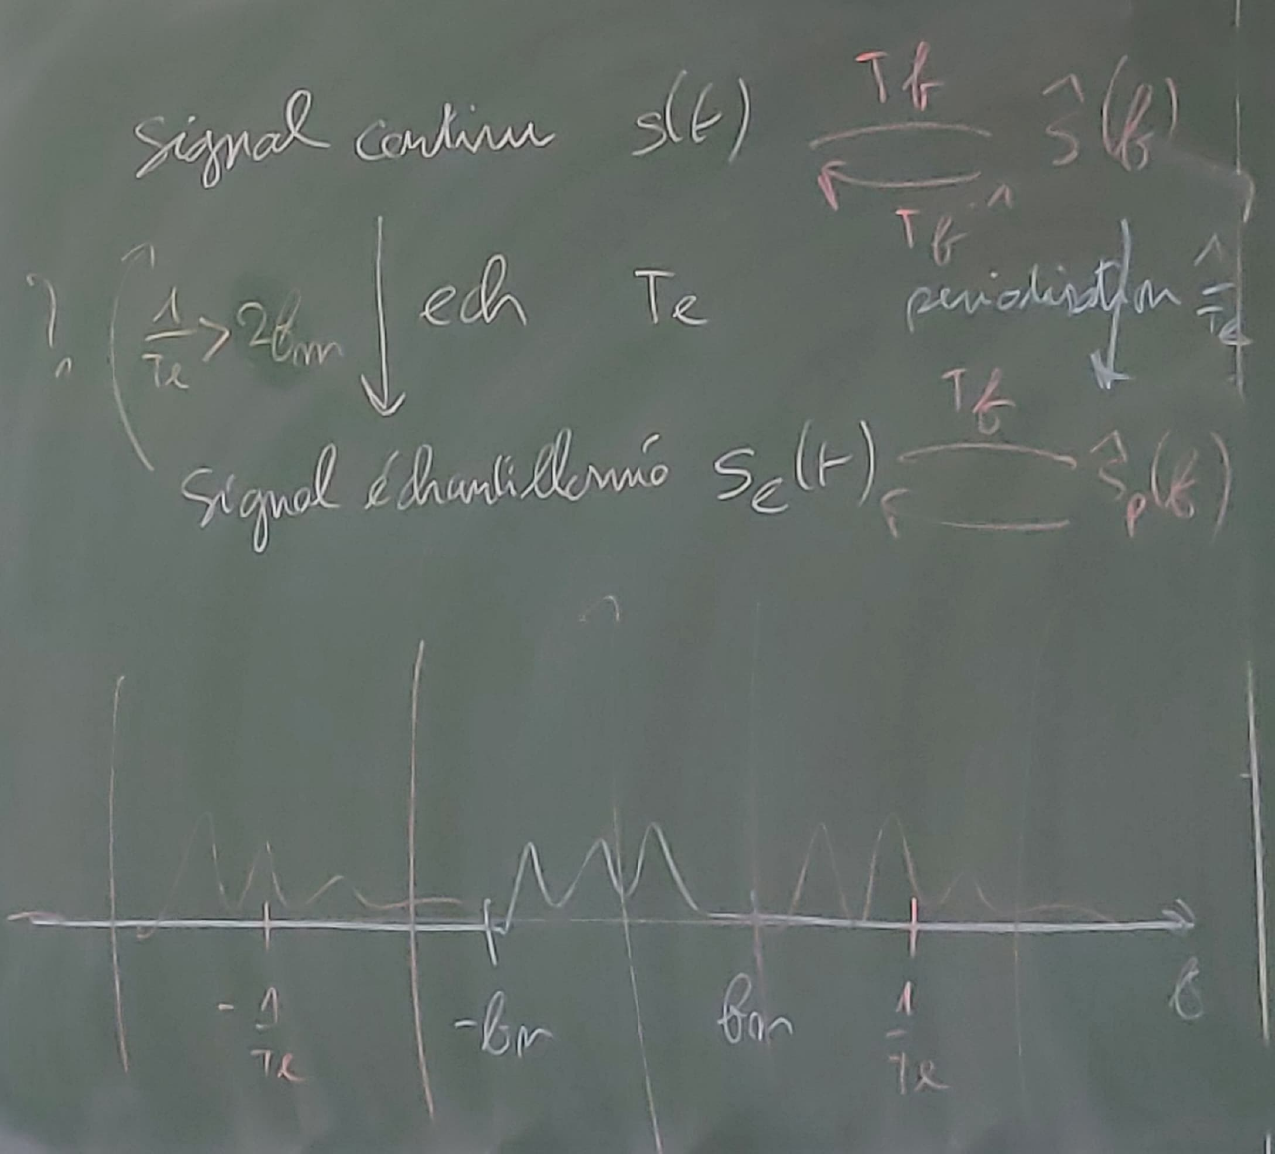 signal continu s(t) Tf ŝ(f)
Tf⁻¹
? 1/Te > 2fm ech Te periodisation 1/Te
Tf
signal échantillonné Se(t) ŝp(f)
-1/Te -fm fm 1/Te f